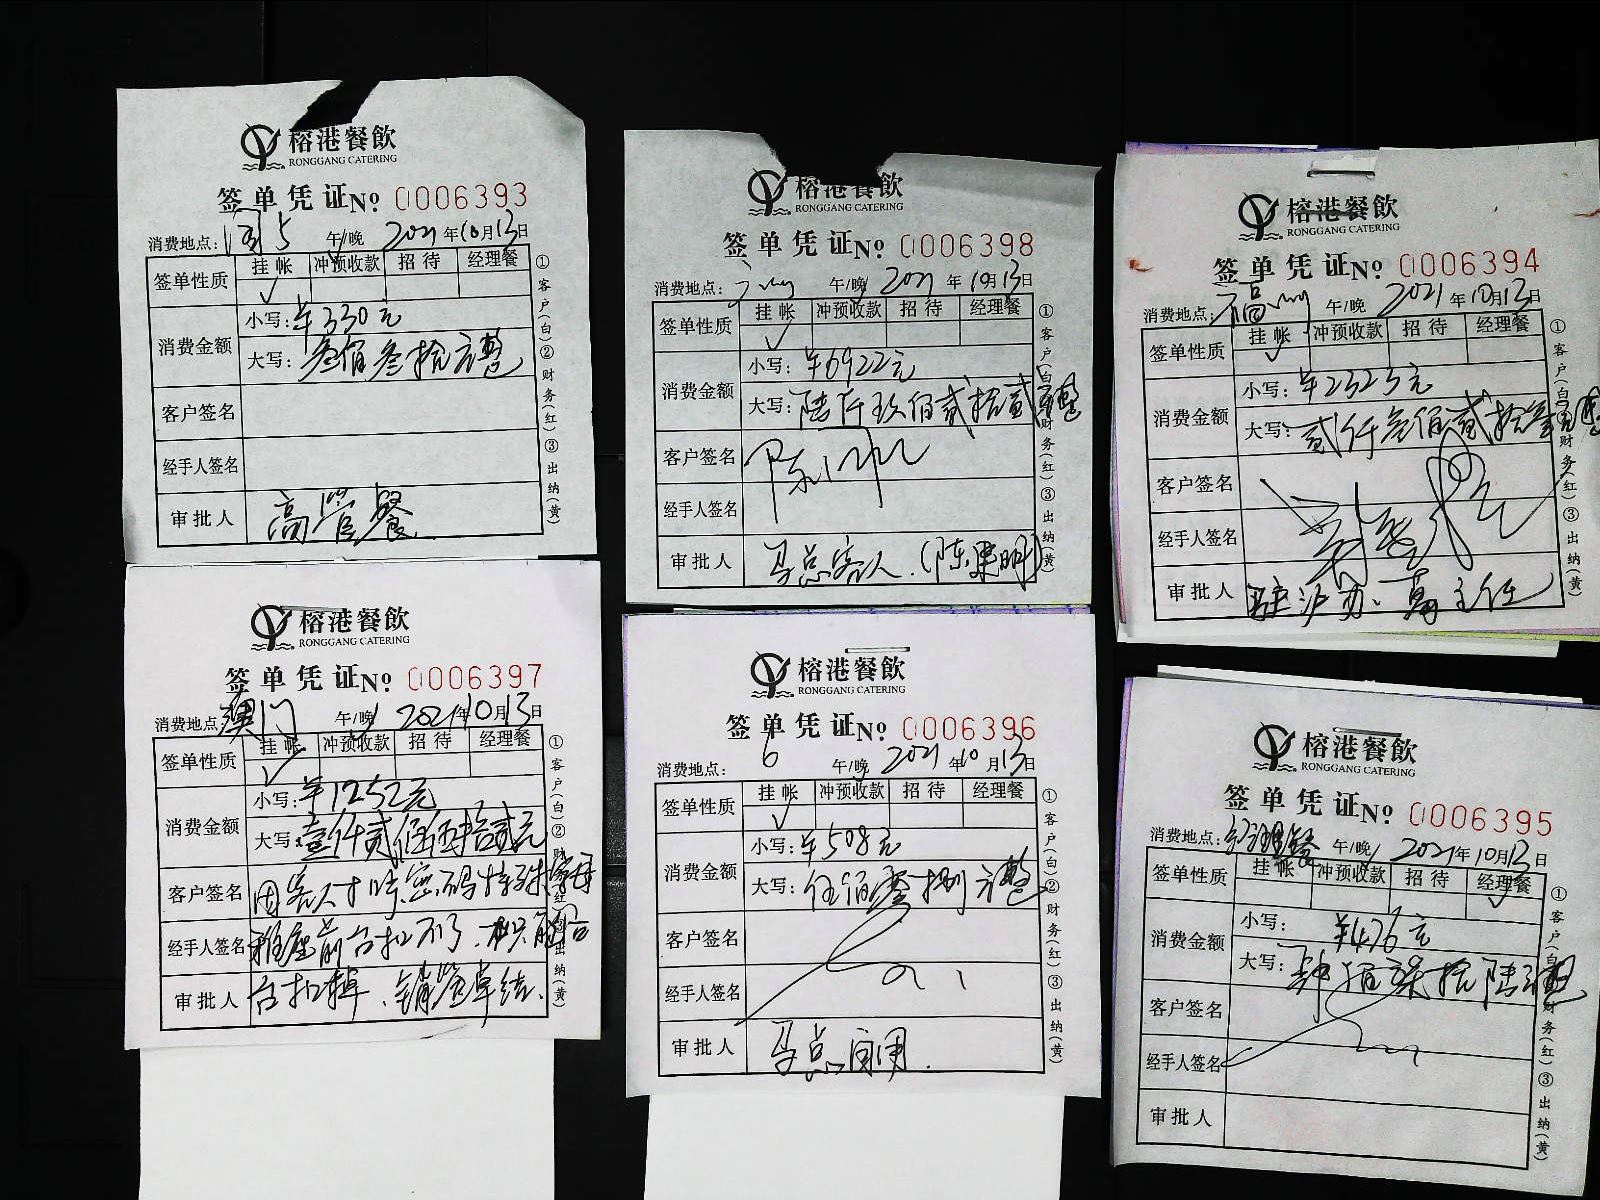 榕港餐飲
RONGGANG CATERING
签单凭证 No 0006393
消费地点: 5 午/晚 2021年10月13日
签单性质 挂帐 冲预收款 招待 经理餐
✓
消费金额
小写: ¥330元
大写: 叁佰叁拾元整
客户签名
经手人签名
审批人 高管餐
①客户(白)②财务(红)③出纳(黄)
榕港餐飲
RONGGANG CATERING
签单凭证 No 0006398
消费地点: 广州 午/晚 2021年10月13日
签单性质 挂帐 冲预收款 招待 经理餐
✓
消费金额
小写: ¥6922元
大写: 陆仟玖佰贰拾贰元整
客户签名
经手人签名
审批人 马总客人.(陈建明)
①客户(白)②财务(红)③出纳(黄)
榕港餐飲
RONGGANG CATERING
签单凭证 No 0006394
消费地点: 福州 午/晚 2021年10月13日
签单性质 挂帐 冲预收款 招待 经理餐
✓
消费金额
小写: ¥2323元
大写: 贰仟叁佰贰拾叁元整
客户签名
经手人签名
审批人 驻沪办.葛主任
①客户(白)②财务(红)③出纳(黄)
榕港餐飲
RONGGANG CATERING
签单凭证 No 0006397
消费地点: 澳门 午/晚 2021年10月13日
签单性质 挂帐 冲预收款 招待 经理餐
✓
消费金额
小写: ¥1252元
大写: 壹仟贰佰伍拾贰元
客户签名 因客人卡时.密码特殊
经手人签名 雅座前台扣不了.
审批人
①客户(白)②财务(红)③出纳(黄)
榕港餐飲
RONGGANG CATERING
签单凭证 No 0006396
消费地点: 6 午/晚 2021年10月13日
签单性质 挂帐 冲预收款 招待 经理餐
✓
消费金额
小写: ¥508元
大写: 伍佰零捌元整
客户签名
经手人签名
审批人 马总自用.
①客户(白)②财务(红)③出纳(黄)
榕港餐飲
RONGGANG CATERING
签单凭证 No 0006395
消费地点: 经理餐 午/晚 2021年10月13日
签单性质 挂帐 冲预收款 招待 经理餐
✓
消费金额
小写: ¥476元
大写: 肆佰柒拾陆元整
客户签名
经手人签名
审批人
①客户(白)②财务(红)③出纳(黄)